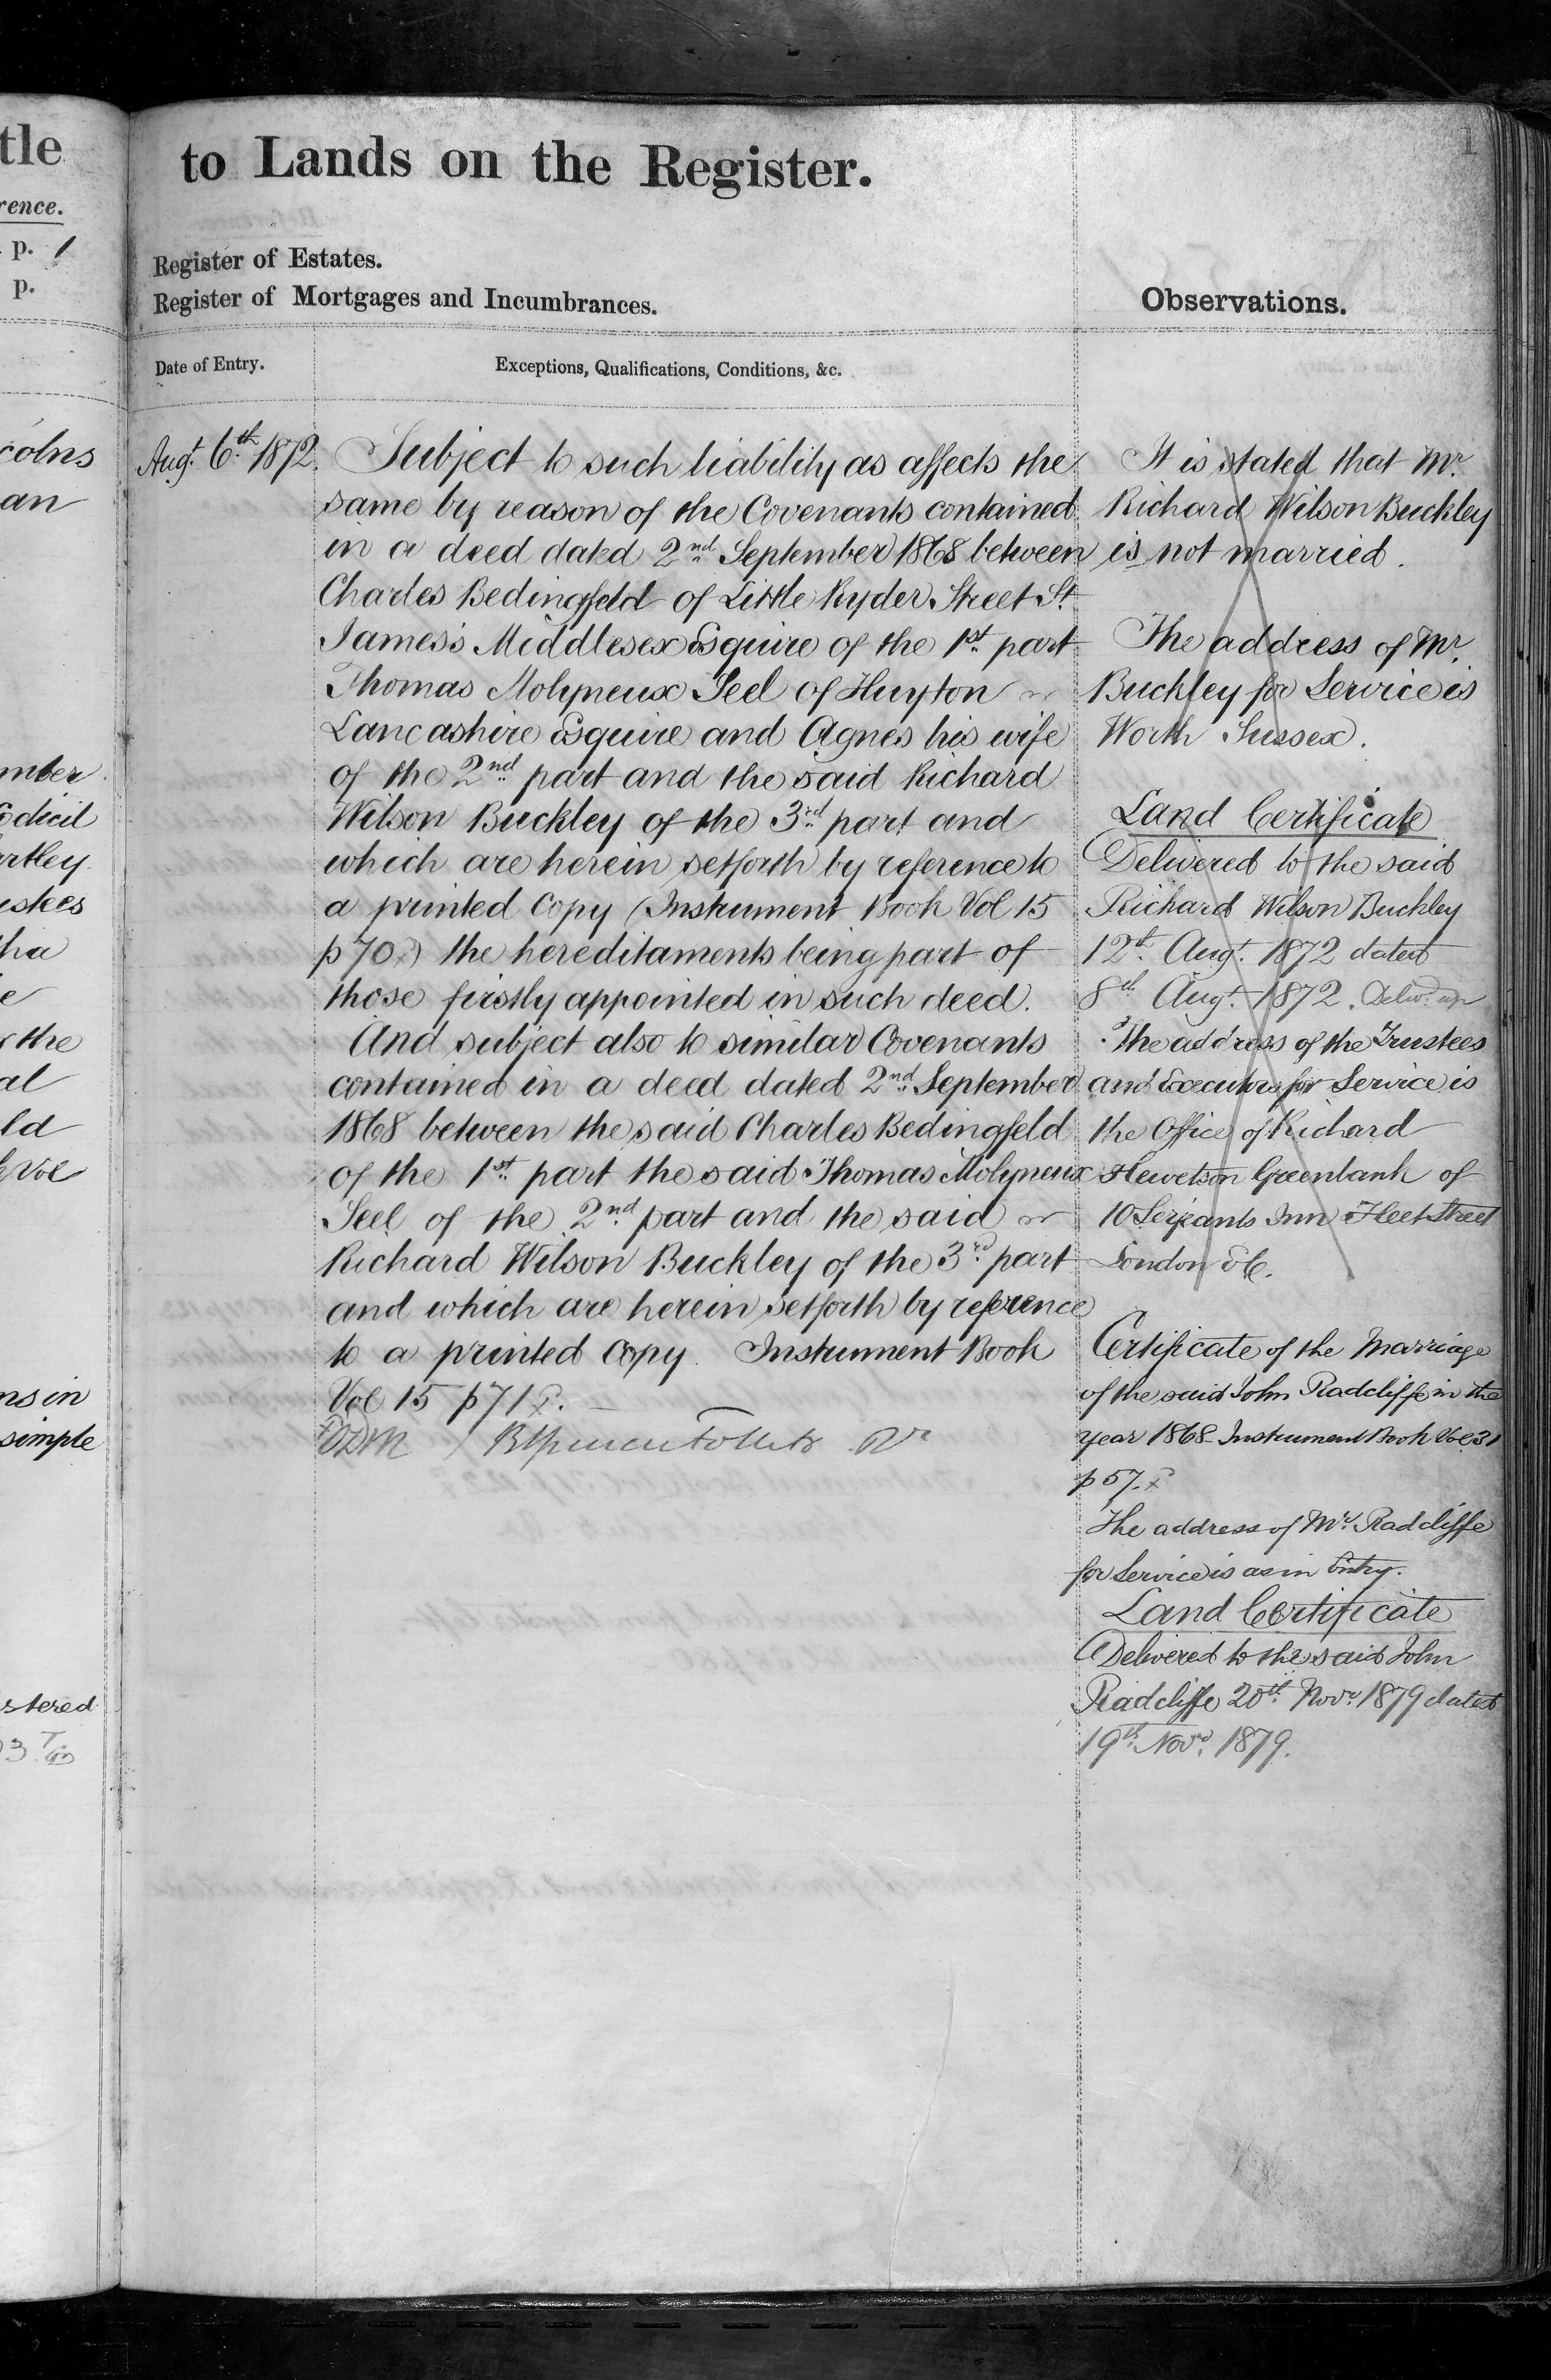 tle
rence.
p. 1
p.
colns
an
mber
odicil
rtley
ustees
tha
e
r the
al
ld
Vol
ns in
simple
stered
to Lands on the Register.
1
Register of Estates.
Register of Mortgages and Incumbrances.
Date of Entry.
Exceptions, Qualifications, Conditions, &c.
Augt. 6th 1872.
Subject to such liability as affects the
same by reason of the Covenants contained
in a deed dated 2nd September 1868 between
Charles Bedingfeld of Little Ryder Street St.
James's Middlesex Esquire of the 1st part
Thomas Molyneux Seel of Huyton
Lancashire Esquire and Agnes his wife
of the 2nd part and the said Richard
Wilson Buckley of the 3rd part and
which are herein setforth by reference to
a printed Copy (Instrument Book Vol 15
p 70.) the hereditaments being part of
those firstly appointed in such deed.
And subject also to similar Covenants
contained in a deed dated 2nd September
1868 between the said Charles Bedingfeld
of the 1st part the said Thomas Molyneux
Seel of the 2nd part and the said
Richard Wilson Buckley of the 3rd part
and which are herein setforth by reference
to a printed Copy. Instrument Book
Vol 15 p 71
Observations.
It is stated that Mr.
Richard Wilson Buckley
is not married.
The address of Mr.
Buckley for Service is
Worth Sussex.
Land Certificate
Delivered to the said
Richard Wilson Buckley
12th Augt. 1872 dated
8th Augt. 1872. Delivd. up
The address of the Trustees
and Executors for Service is
the Office of Richard
Hewetson Greenbank of
10 Serjeants Inn Fleet Street
London EC.
Certificate of the Marriage
of the said John Radcliffe in the
year 1868 Instrument Book Vol 31
p 57.
The address of Mr. Radcliffe
for Service is as in Entry.
Land Certificate
Delivered to the said John
Radcliffe 20th Novr. 1879 dated
19th Novr. 1879.